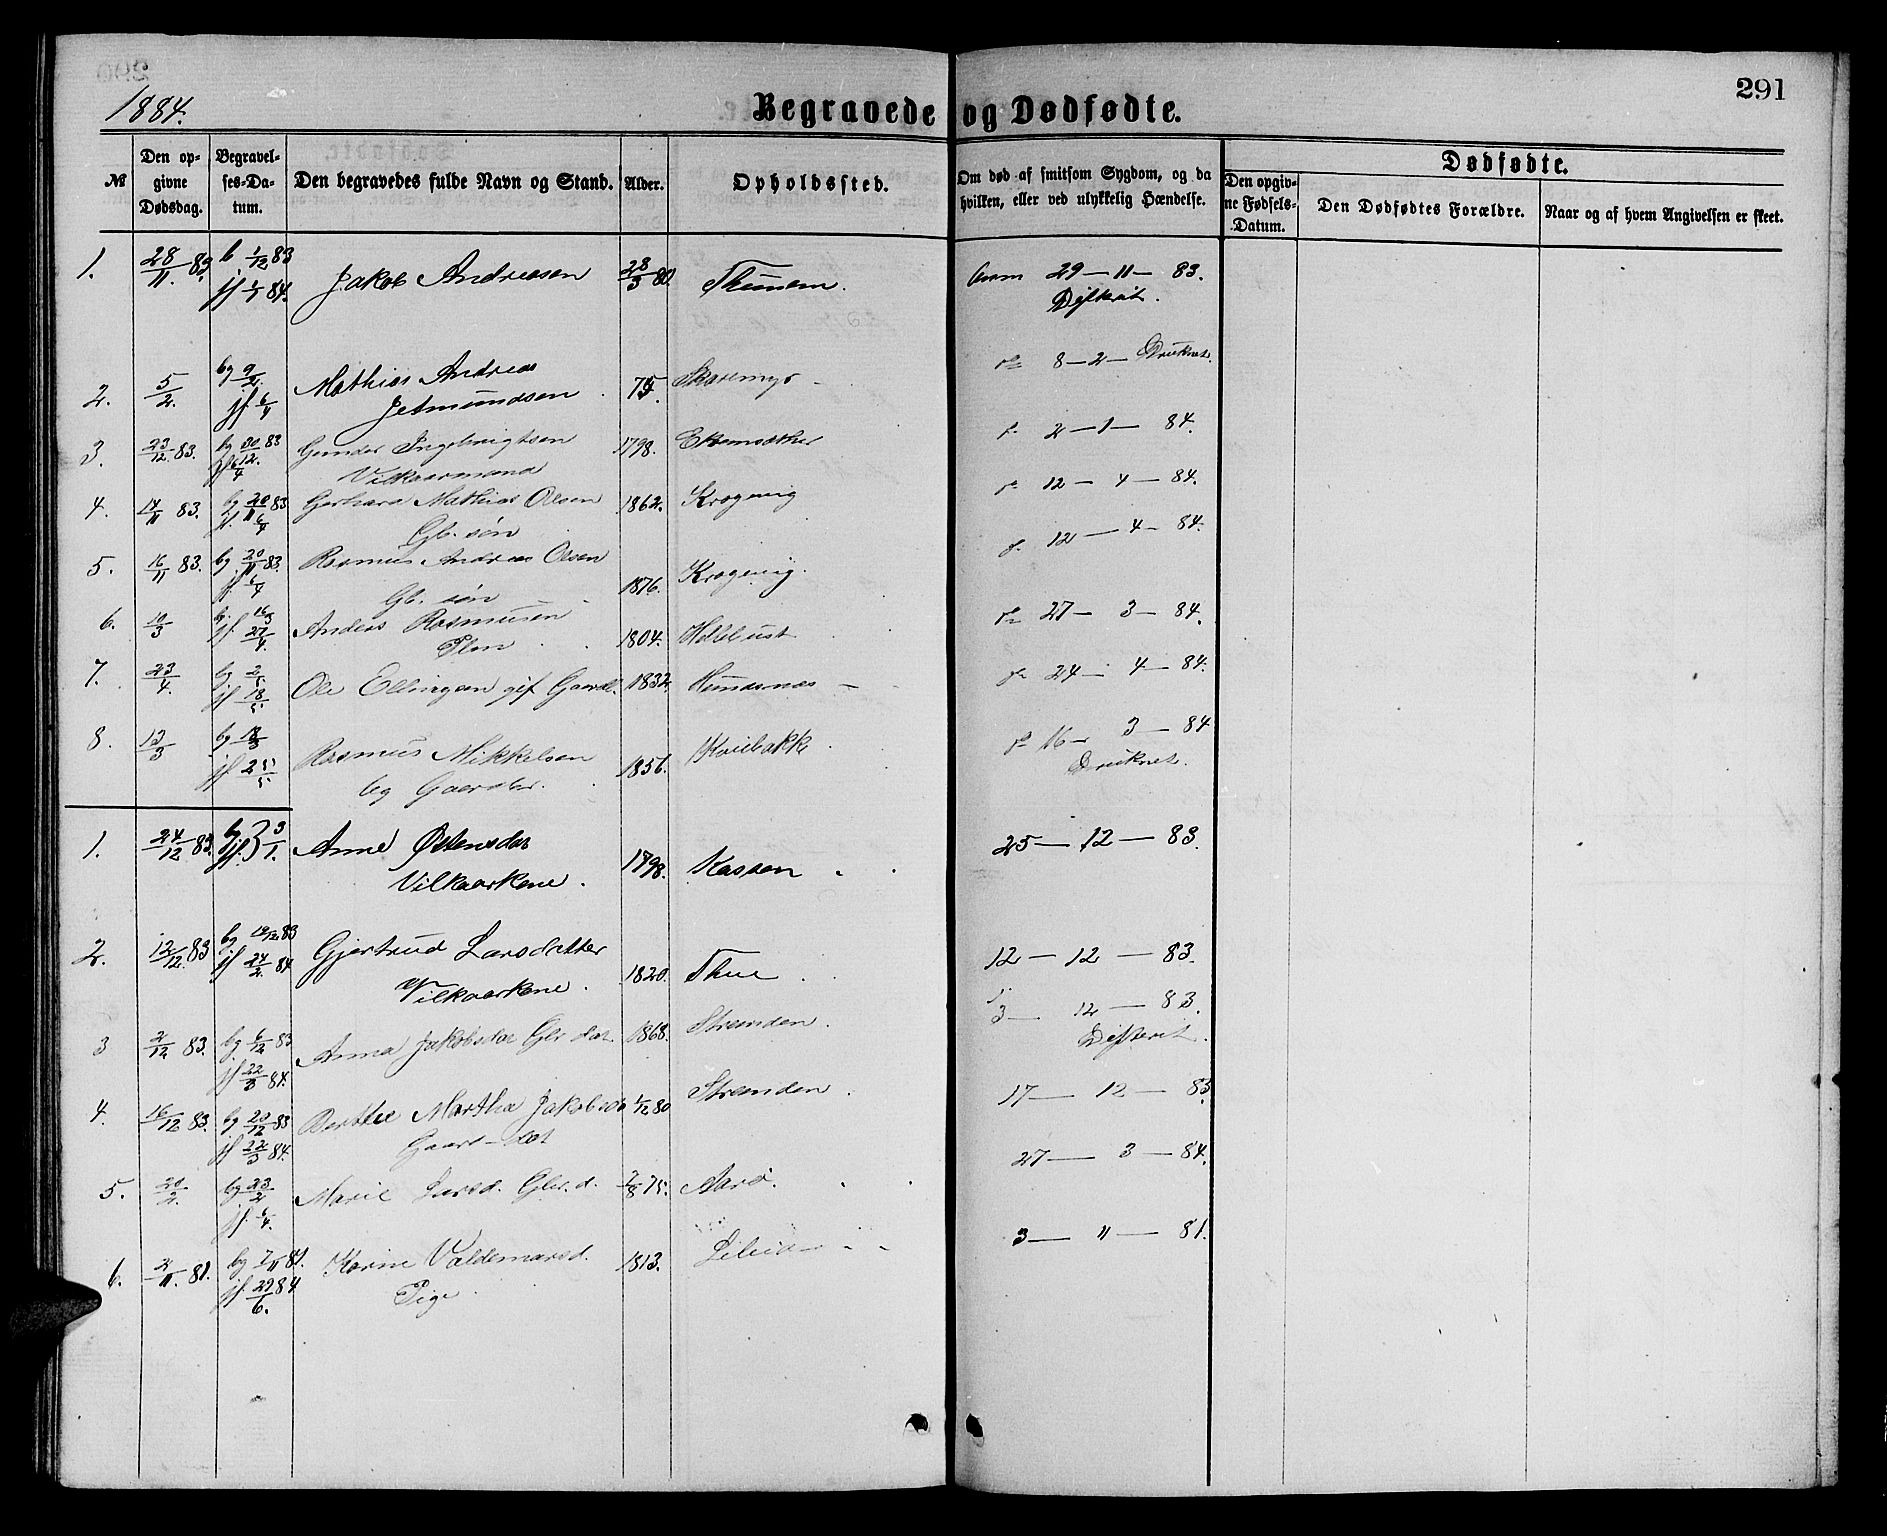 291
1884.
Begravede og Dødfødte.
№
Den opgivne Dødsdag.
Begravelses-Datum.
Den begravedes fulde Navn og Stand.
Alder.
Opholdssted.
Om død af smitsom Sygdom, og da hvilken, eller ved ulykkelig Hændelse.
Dødfødte.
Den opgivne Fødsels-Datum.
Den Dødfødtes Forældre.
Naar og af hvem Angivelsen er skeet.
1. 28/11 83. b 1/12 83 Jakob Andreasen 28/3 80. Thunem. 29 — 11 — 83.
jf 1/1 84. Difterit.
2. 5/2. bg 9/2. Mathias Andreas 75. Skaremyr 8 — 2 — Druknet.
jf 6/4 Jetmundsen
3. 23/12 83. bg 30/12 83 Gunder Ingebrigtsen 1798. 2 — 1 — 84.
jf 6/4 Vilkaarmand
4. 14/11 83. bg 20/11 83 Gerhard Mathias Olsen 1862. Krogevig 12 — 4 — 84.
jf 6/4 Gb. søn
5. 16/11 83. bg 20/11 83. Rasmus Andreas Olsen 1876. Krogevig. 12 — 4 — 84.
jf 6/4 Gb. søn
6. 10/3 b. 16/3 Anders Rasmusen 1804. 27 — 3 — 84.
jf. 27/4.
7. 23/4. bg 2/5 Ole Ellingsen gif Gaardb. 1832. Hundsnæs 24 — 4 — 84.
jf 18/5
8. 13/3 bg 18/3 Rasmus Mikkelsen 1856. 16 — 3 — 84
jf 25/5 Gaardbr. Druknet.
1. 24/12 83. bg jf. 3/1. Anne Østensdat 1798. Kassen 25 — 12 — 83.
Vilkaarkone.
2. 12/12. 83 bg 19/12 83 Gjertrud Larsdatter 1820. Thue 12 — 12 — 83.
jf 24/2. 84 Vilkaarkone.
3 2/12 83. bg 6/12 83 Anna Jakobsdat Gbr. dat. 1868. Stranden. 3 — 12 — 83.
jf 22/3 84. Difterit.
4. 16/12 83. bg 20/12 83 Berthe Martha Jakobsd 1/12 80 Stranden. 17 — 12 — 83
jf 22/3 84. Gaard — dat
5. 20/2. bg 23/2 Marie Larsd. Gbr. d. 2/8 75. Aarø. 27 — 3 — 84.
jf. 6/4.
6. 2/11. 81. bg 7/11 81. Karine Valdemarsd. 1813. 3 — 11 — 81.
jf. 29/6. 84 Pige